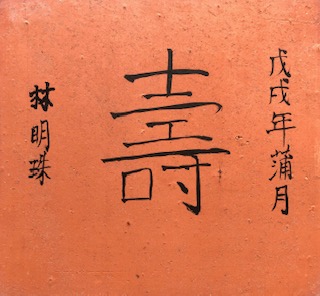 戊戌年蒲月
壽
林明珠